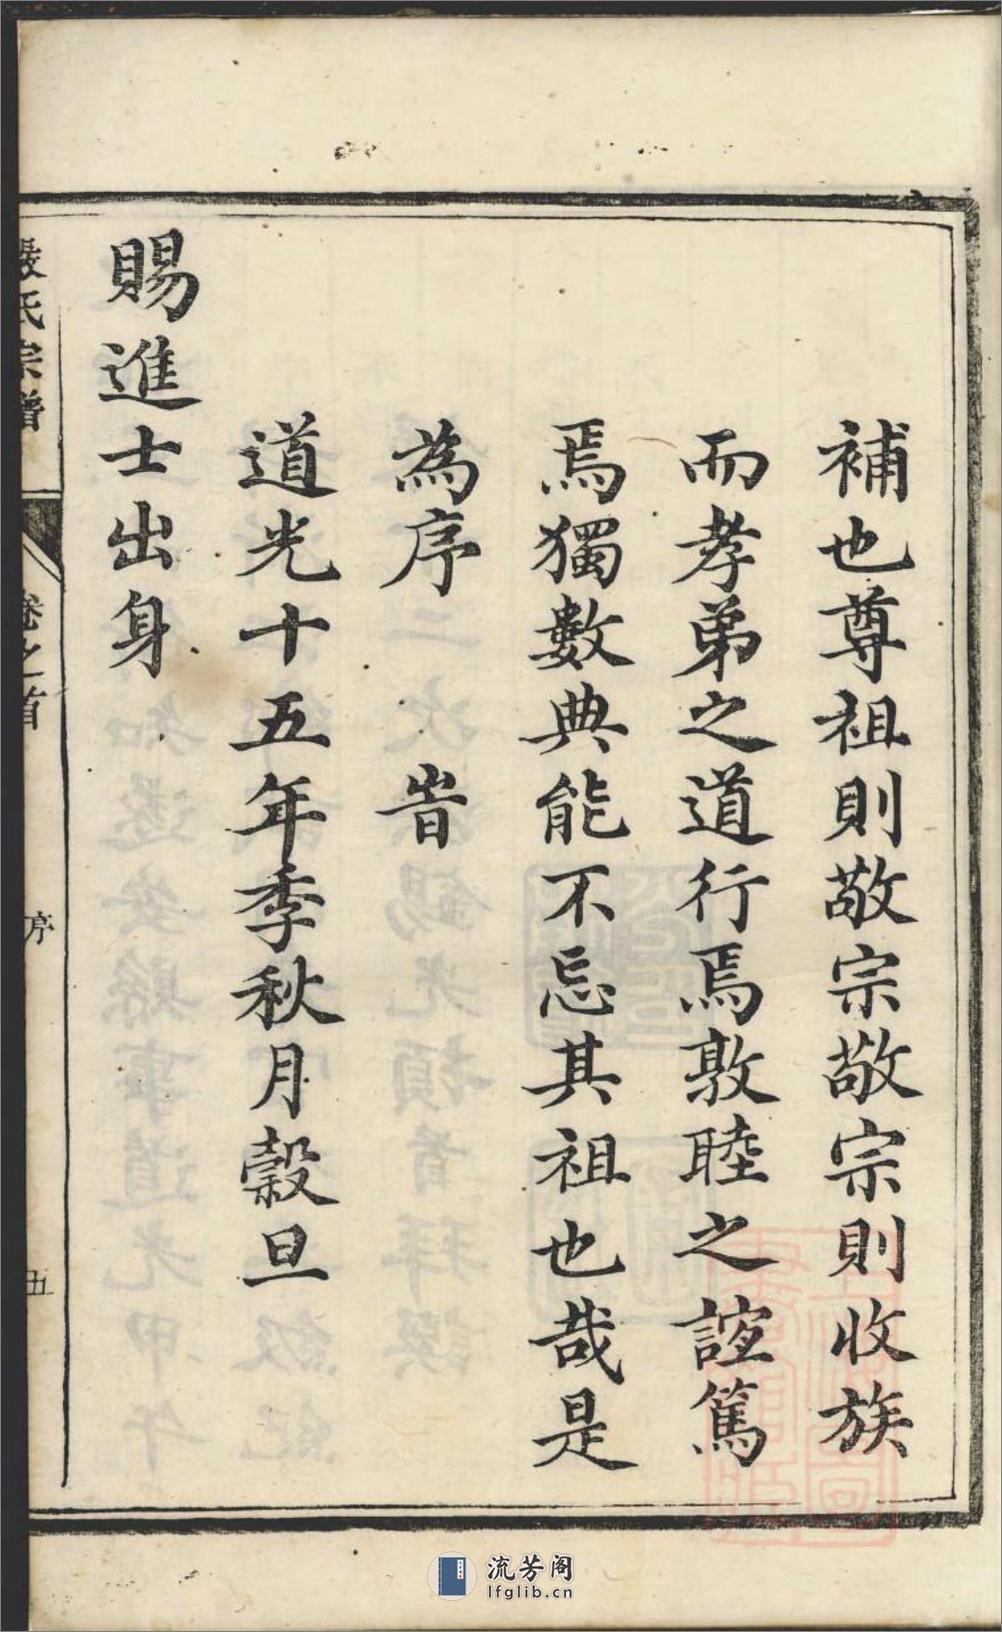 補也尊祖則敬宗敬宗則收族
而孝弟之道行焉敦睦之誼篤
焉獨數典能不忘其祖也哉是
為序　旹
道光十五年季秋月穀旦
賜進士出身
氏宗譜
卷之首
序
五
流芳阁
lfglib.cn